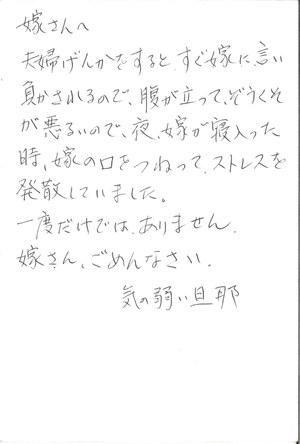 嫁さんへ
夫婦げんかをすると、すぐ嫁に、言い
負かされるので、腹が立って、ぞうくそ
が悪るいので、夜、嫁が寝入った
時、嫁の口をつねって、ストレスを
発散していました。
一度だけでは、ありません。
嫁さん、ごめんなさい。
気の弱い旦那